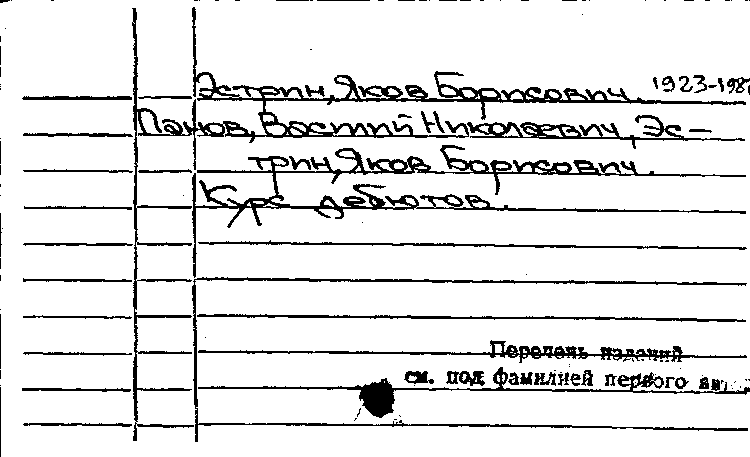 Эстрин, Яков Борисович. 1923-1987
Панов, Василий Николаевич, Эс-
трин, Яков Борисович.
Курс дебютов.
Перечень изданий
см. под фамилией первого